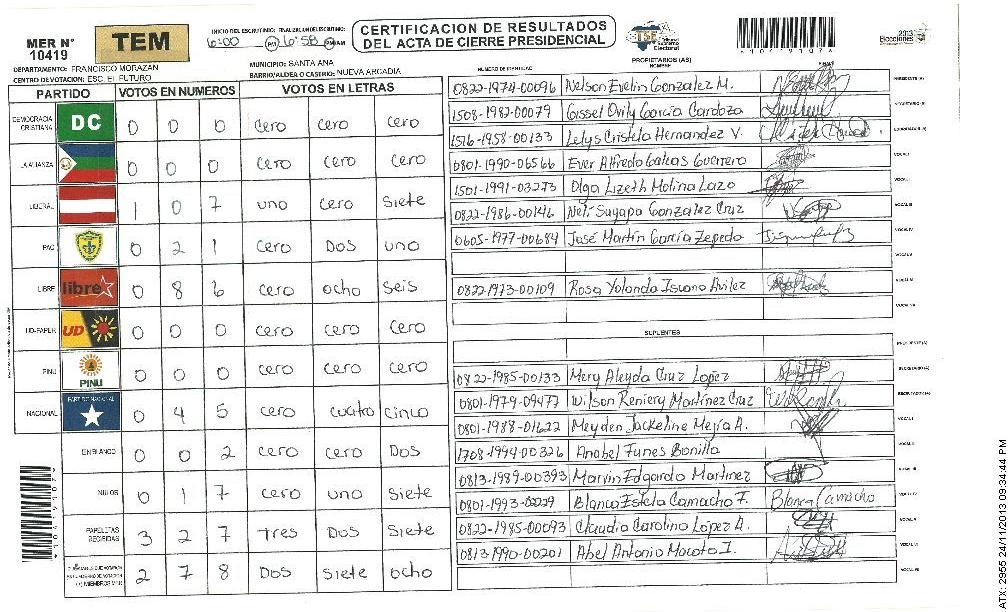 MER N°
10419
TEM
INICIO DEL ESCRUTINIO: FINALIZACION DEL ESCRUTINIO:
6:00 PM 6:58 PM/AM
CERTIFICACION DE RESULTADOS
DEL ACTA DE CIERRE PRESIDENCIAL
TSE
Tribunal Supremo Electoral
2013
Elecciones
DEPARTAMENTO: FRANCISCO MORAZAN
CENTRO DE VOTACION: ESC. EL FUTURO
MUNICIPIO: SANTA ANA
BARRIO/ALDEA O CASERIO: NUEVA ARCADIA
PARTIDO VOTOS EN NUMEROS VOTOS EN LETRAS
DEMOCRACIA CRISTIANA DC 0 0 0 cero cero cero
LA ALIANZA 0 0 0 cero cero cero
LIBERAL 1 0 7 uno cero siete
PAC 0 2 1 cero Dos uno
LIBRE libre 0 8 6 cero ocho seis
UD-FAPER UD 0 0 0 cero cero cero
PINU PINU 0 0 0 cero cero cero
NACIONAL PARTIDO NACIONAL 0 4 5 cero cuatro cinco
EN BLANCO 0 0 2 cero cero Dos
NULOS 0 1 7 cero uno siete
PAPELETAS RECIBIDAS 3 2 7 Tres Dos siete
2 7 8 Dos siete ocho
PROPIETARIOS (AS)
NUMERO DE IDENTIDAD NOMBRE FIRMA
0822-1974-00096 Nelson Evelin Gonzalez M. PRESIDENTE (A)
1508-1982-00079 Gissel Ovily García Cardoza SECRETARIO (A)
1516-1958-00133 Lelys Cristela Hernandez V. ESCRUTADOR (A)
0801-1990-06566 Ever Alfredo Galeas Guerrero VOCAL I
1501-1991-03273 Olga Lizeth Molina Lazo VOCAL II
0822-1986-00146 Neli Suyapa Gonzalez Cruz VOCAL III
0605-1977-00684 José Martín García Zepeda VOCAL IV
VOCAL V
0822-1973-00109 Rosa Yolanda Isuano Avilez VOCAL VI
VOCAL VII
SUPLENTES
PRESIDENTE (A)
0822-1985-00133 Mery Aleyda Cruz Lopez SECRETARIO (A)
0801-1979-09477 Wilson Reniery Martínez Cruz ESCRUTADOR (A)
0801-1988-01622 Meyden Jackeline Mejía A. VOCAL I
1708-1994-00326 Anabel Funes Bonilla VOCAL II
0813-1989-00393 Marvin Edgardo Martinez VOCAL III
0801-1993-02229 Blanca Estela Camacho F. Blanca Camacho VOCAL IV
0822-1985-00093 Claudia Carolina López A. VOCAL V
0813-1990-00201 Abel Antonio Macoto I. VOCAL VI
VOCAL VII
ATX: 2955 24/11/2013 09:34:44 PM